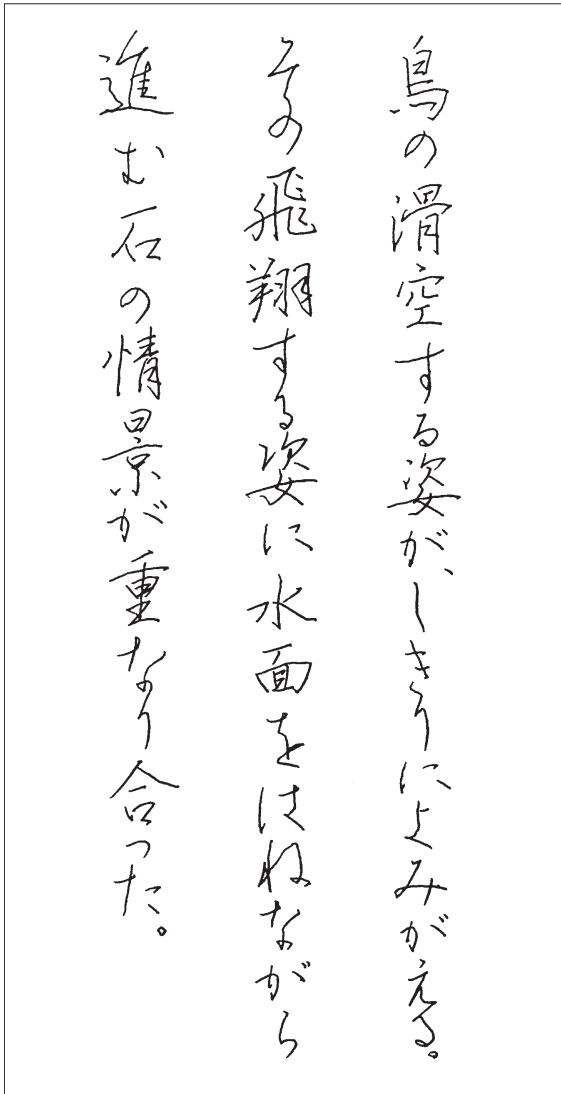 鳥の滑空する姿が、しきりによみがえる。
その飛翔する姿に水面をはねながら
進む石の情景が重なり合った。